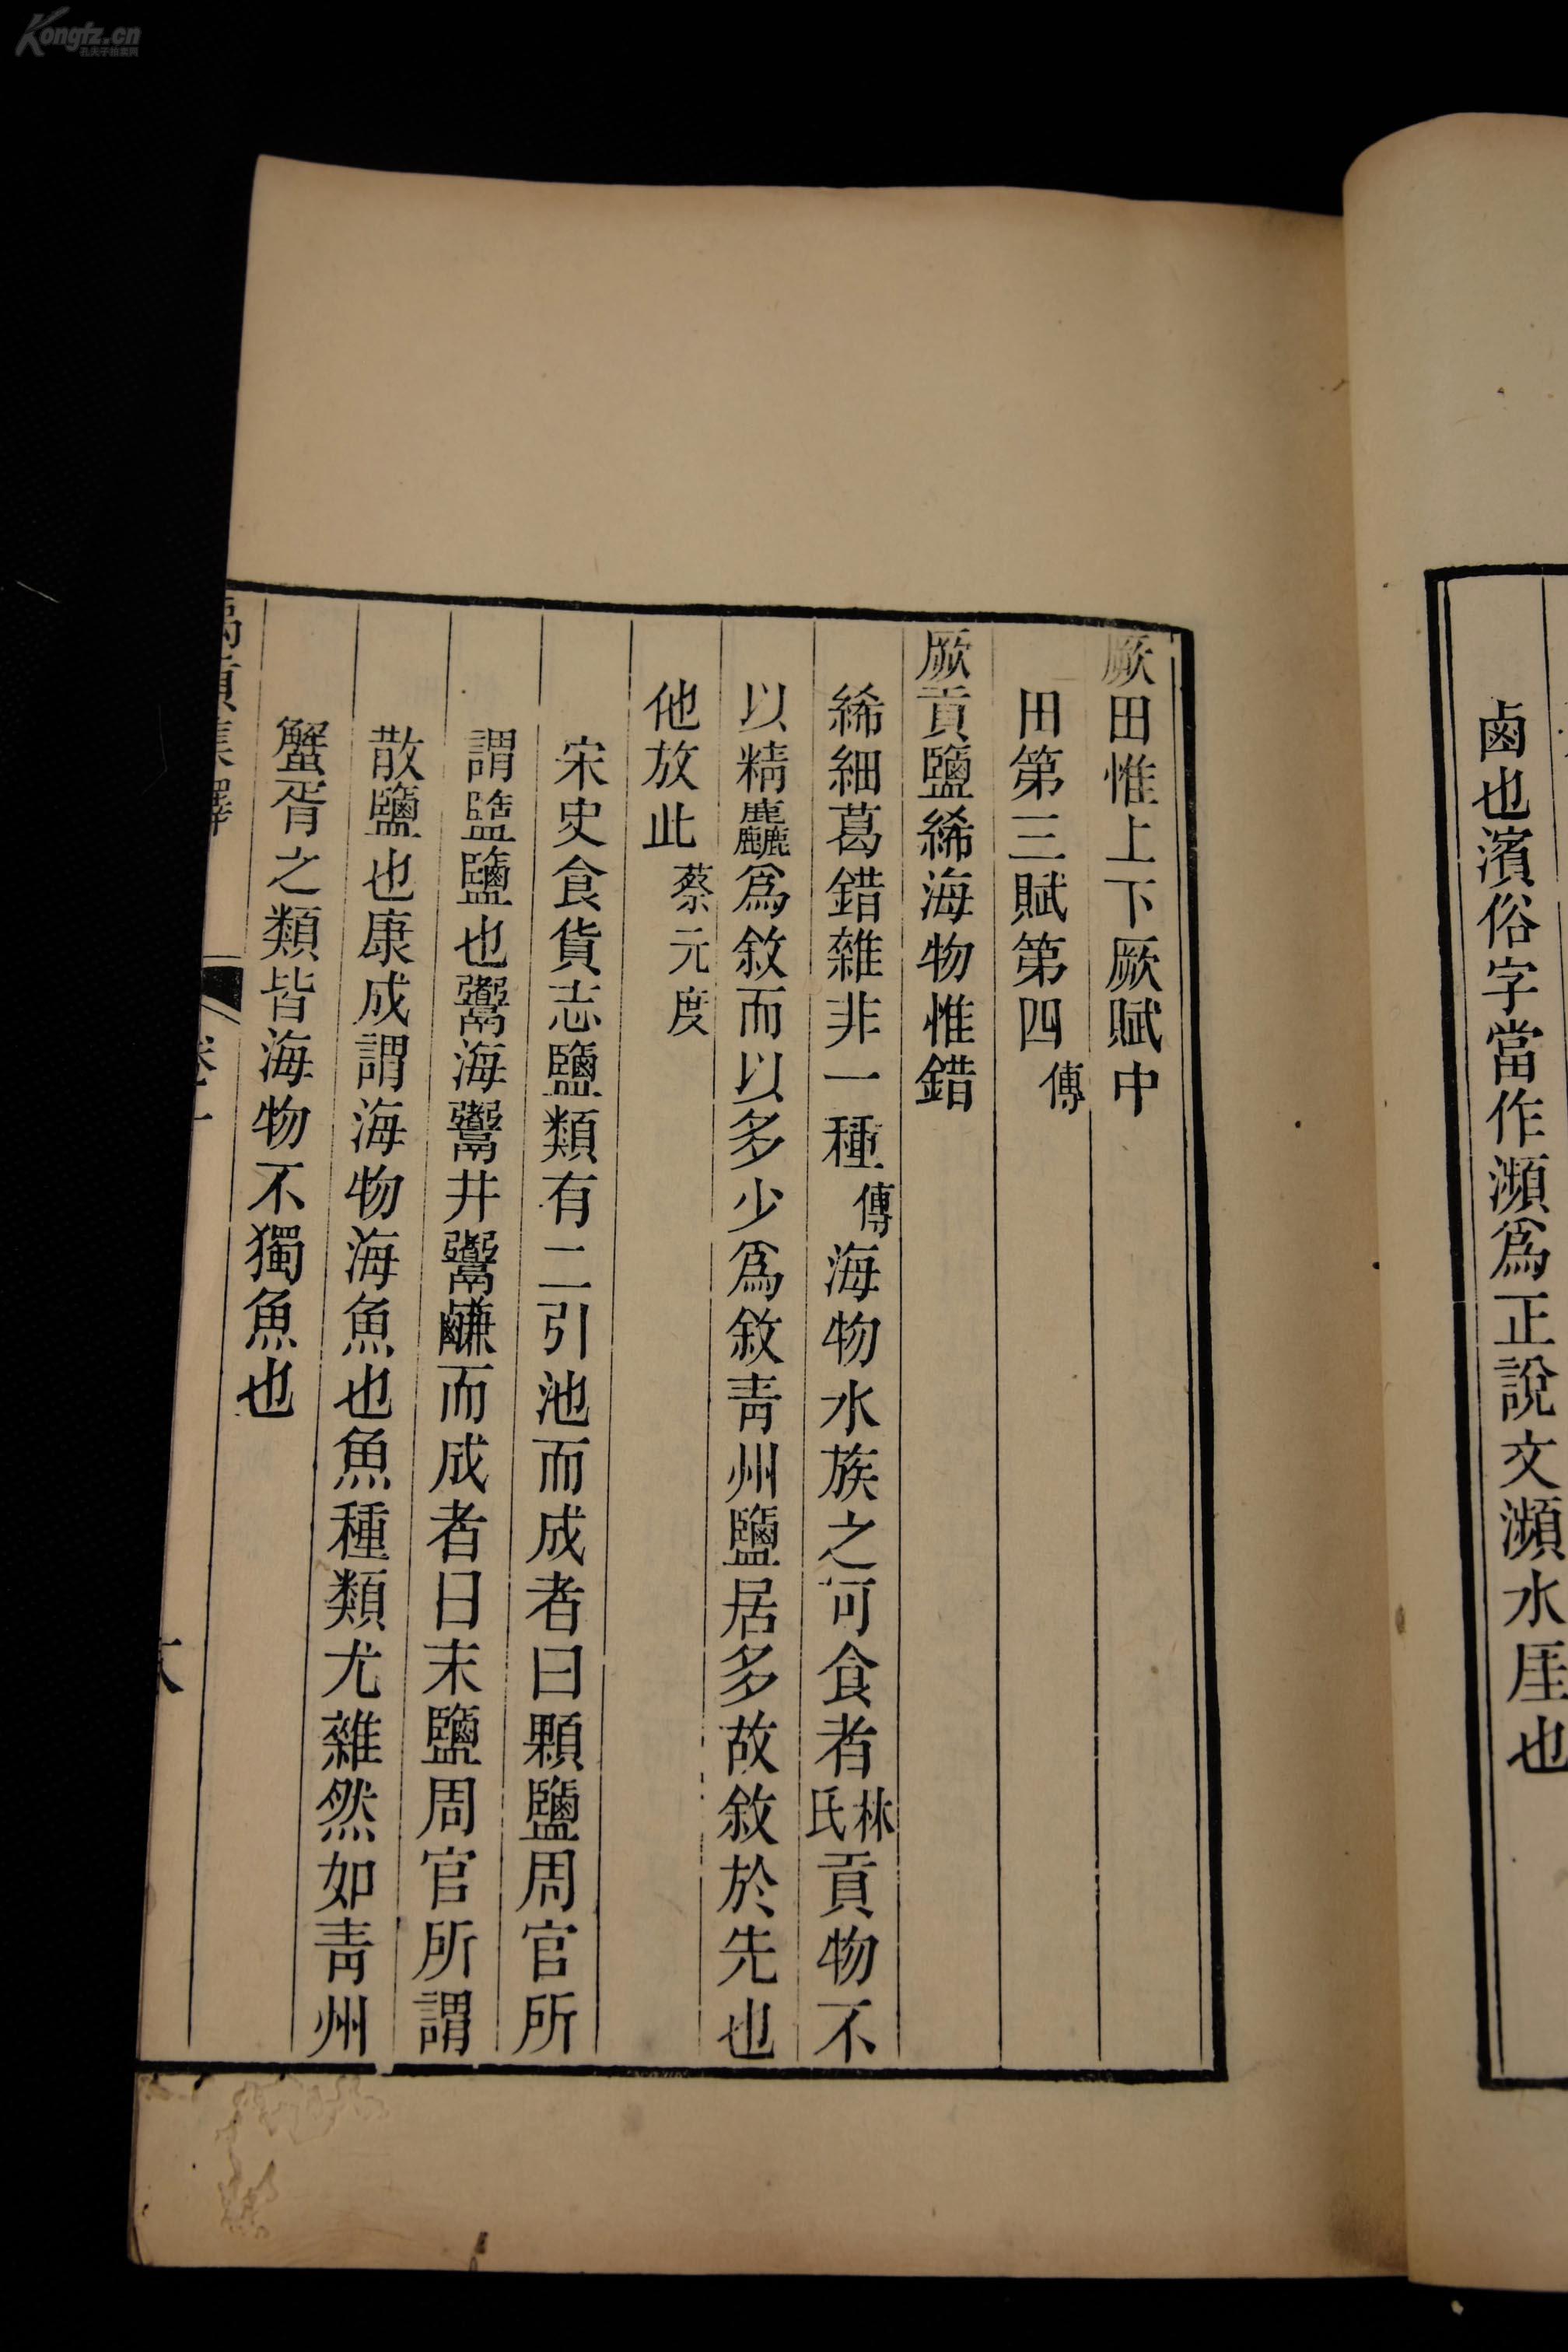 鹵也濱俗字當作瀕爲正說文瀕水厓也
厥田惟上下厥賦中
田第三賦第四傳
厥貢鹽絺海物惟錯
絺細葛錯雜非一種傳海物水族之可食者林氏貢物不
以精麤爲敘而以多少爲敘青州鹽居多故敘於先也
他放此蔡元度
宋史食貨志鹽類有二引池而成者曰顆鹽周官所
謂盬鹽也鬻海鬻井鬻鹻而成者曰末鹽周官所謂
散鹽也康成謂海物海魚也魚種類尤雜然如青州
蟹胥之類皆海物不獨魚也
禹貢集釋
Kongfz.cn
孔夫子旧书网